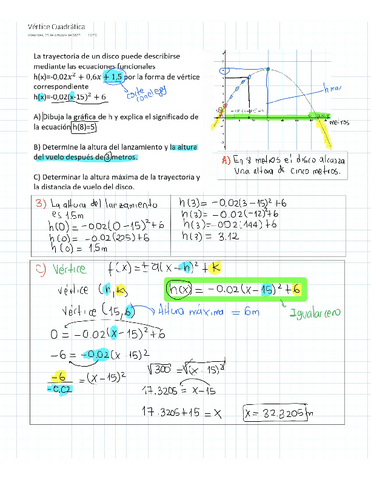 Vértice Cuadrática
La trayectoria de un disco puede describirse
mediante las ecuaciones funcionales
h(x)=-0,02x² + 0,6x + 1,5 por la forma de vértice
correspondiente
h(x)=-0,02(x-15)² + 6
corte
A) Dibuja la gráfica de h y explica el significado de
la ecuación h(8)=5
B) Determine la altura del lanzamiento y la altura
del vuelo después de 3 metros.
C) Determinar la altura máxima de la trayectoria y
la distancia de vuelo del disco.
h max
metros
A) En 8 metros el disco alcanza
una altura de cinco metros.
B) La altura del lanzamiento
es 1.5m
h(0) = -0.02(0-15)²+6
h(0) = -0.02(225)+6
h(0) = 1.5m
h(3) = -0.02(3-15)²+6
h(3) = -0.02(-12)²+6
h(3) = -.002(144)+6
h(3) = 3.12
C) Vértice f(x)=+a(x-h)²+K
vértice (h,K)
h(x) = -0.02(x-15)²+6
vértice (15,6)
Altura máxima = 6m
Igualar cero
0 = -0.02(x-15)²+6
-6 = -0.02(x-15)²
-6/-0.02 = (x-15)²
√300 = √(x-15)²
17.3205 = x-15
17.3205+15 = x
x = 32.3205m